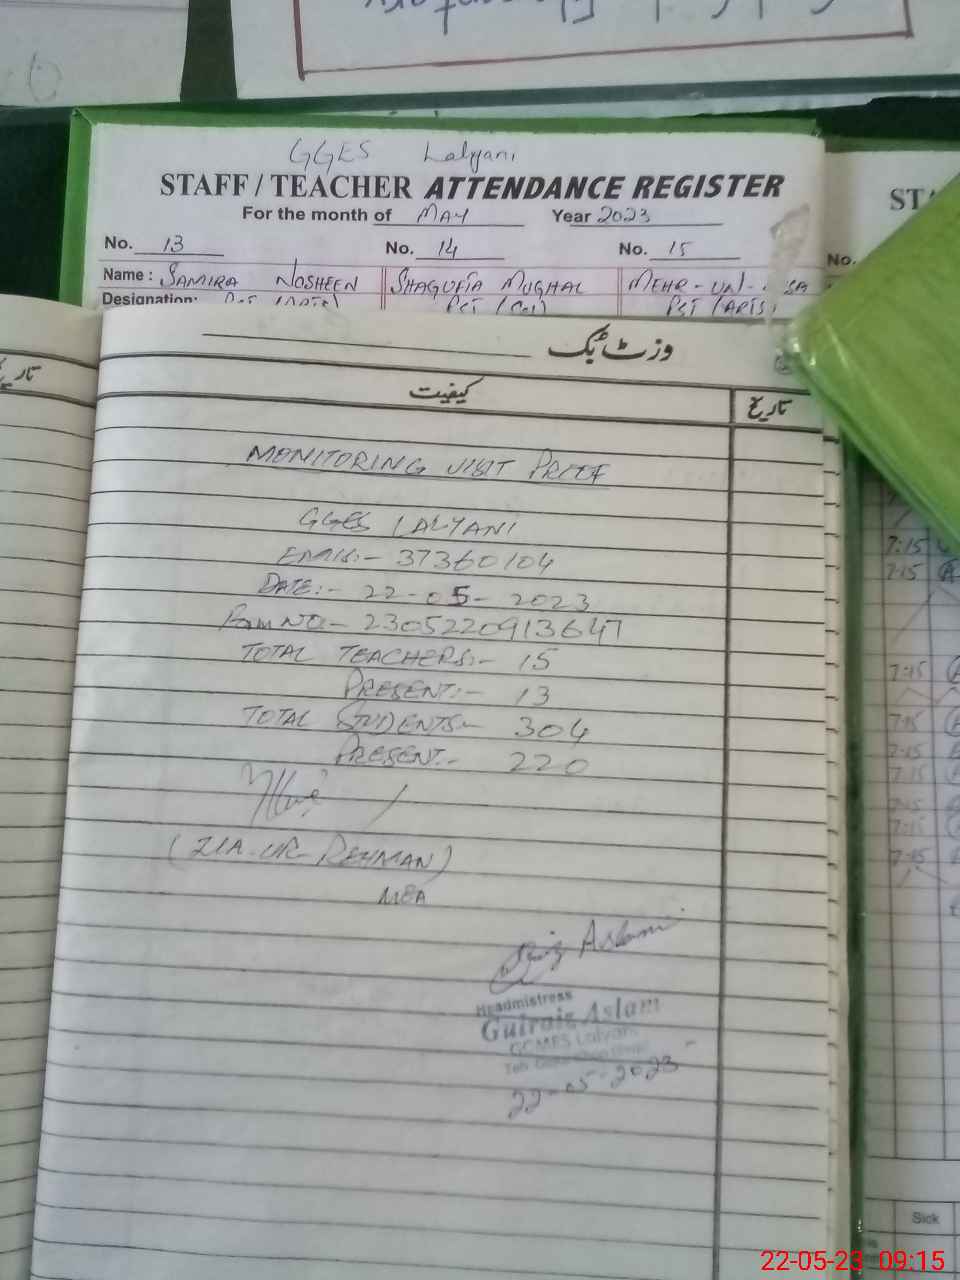 GGES Lalyani
STAFF / TEACHER ATTENDANCE REGISTER
For the month of MAY Year 2023
No. 13 No. 14 No. 15
Name : SAMIRA NOSHEEN SHAGUFTA MUGHAL MEHR-UN-
Designation: PST (ARTS) PST (Sci) PST (ARTS)
ST
No.
وزٹ بک
تاریخ
کیفیت
MONITORING VISIT PROOF
GGES LALYANI
EMIS:- 37360104
DATE:- 22-05-2023
NO:- 2305220913647
TOTAL TEACHERS:- 15
PRESENT:- 13
TOTAL STUDENTS:- 304
PRESENT:- 220
(ZIA-UR-REHMAN)
MEA
Aslam
Headmistress
Gulraiz Aslam
Lalyani
22-05-2023
7:15
7:15
7:15
7:15
7:15
7:15
7:15
7:15
7:15
Sick
22-05-23 09:15